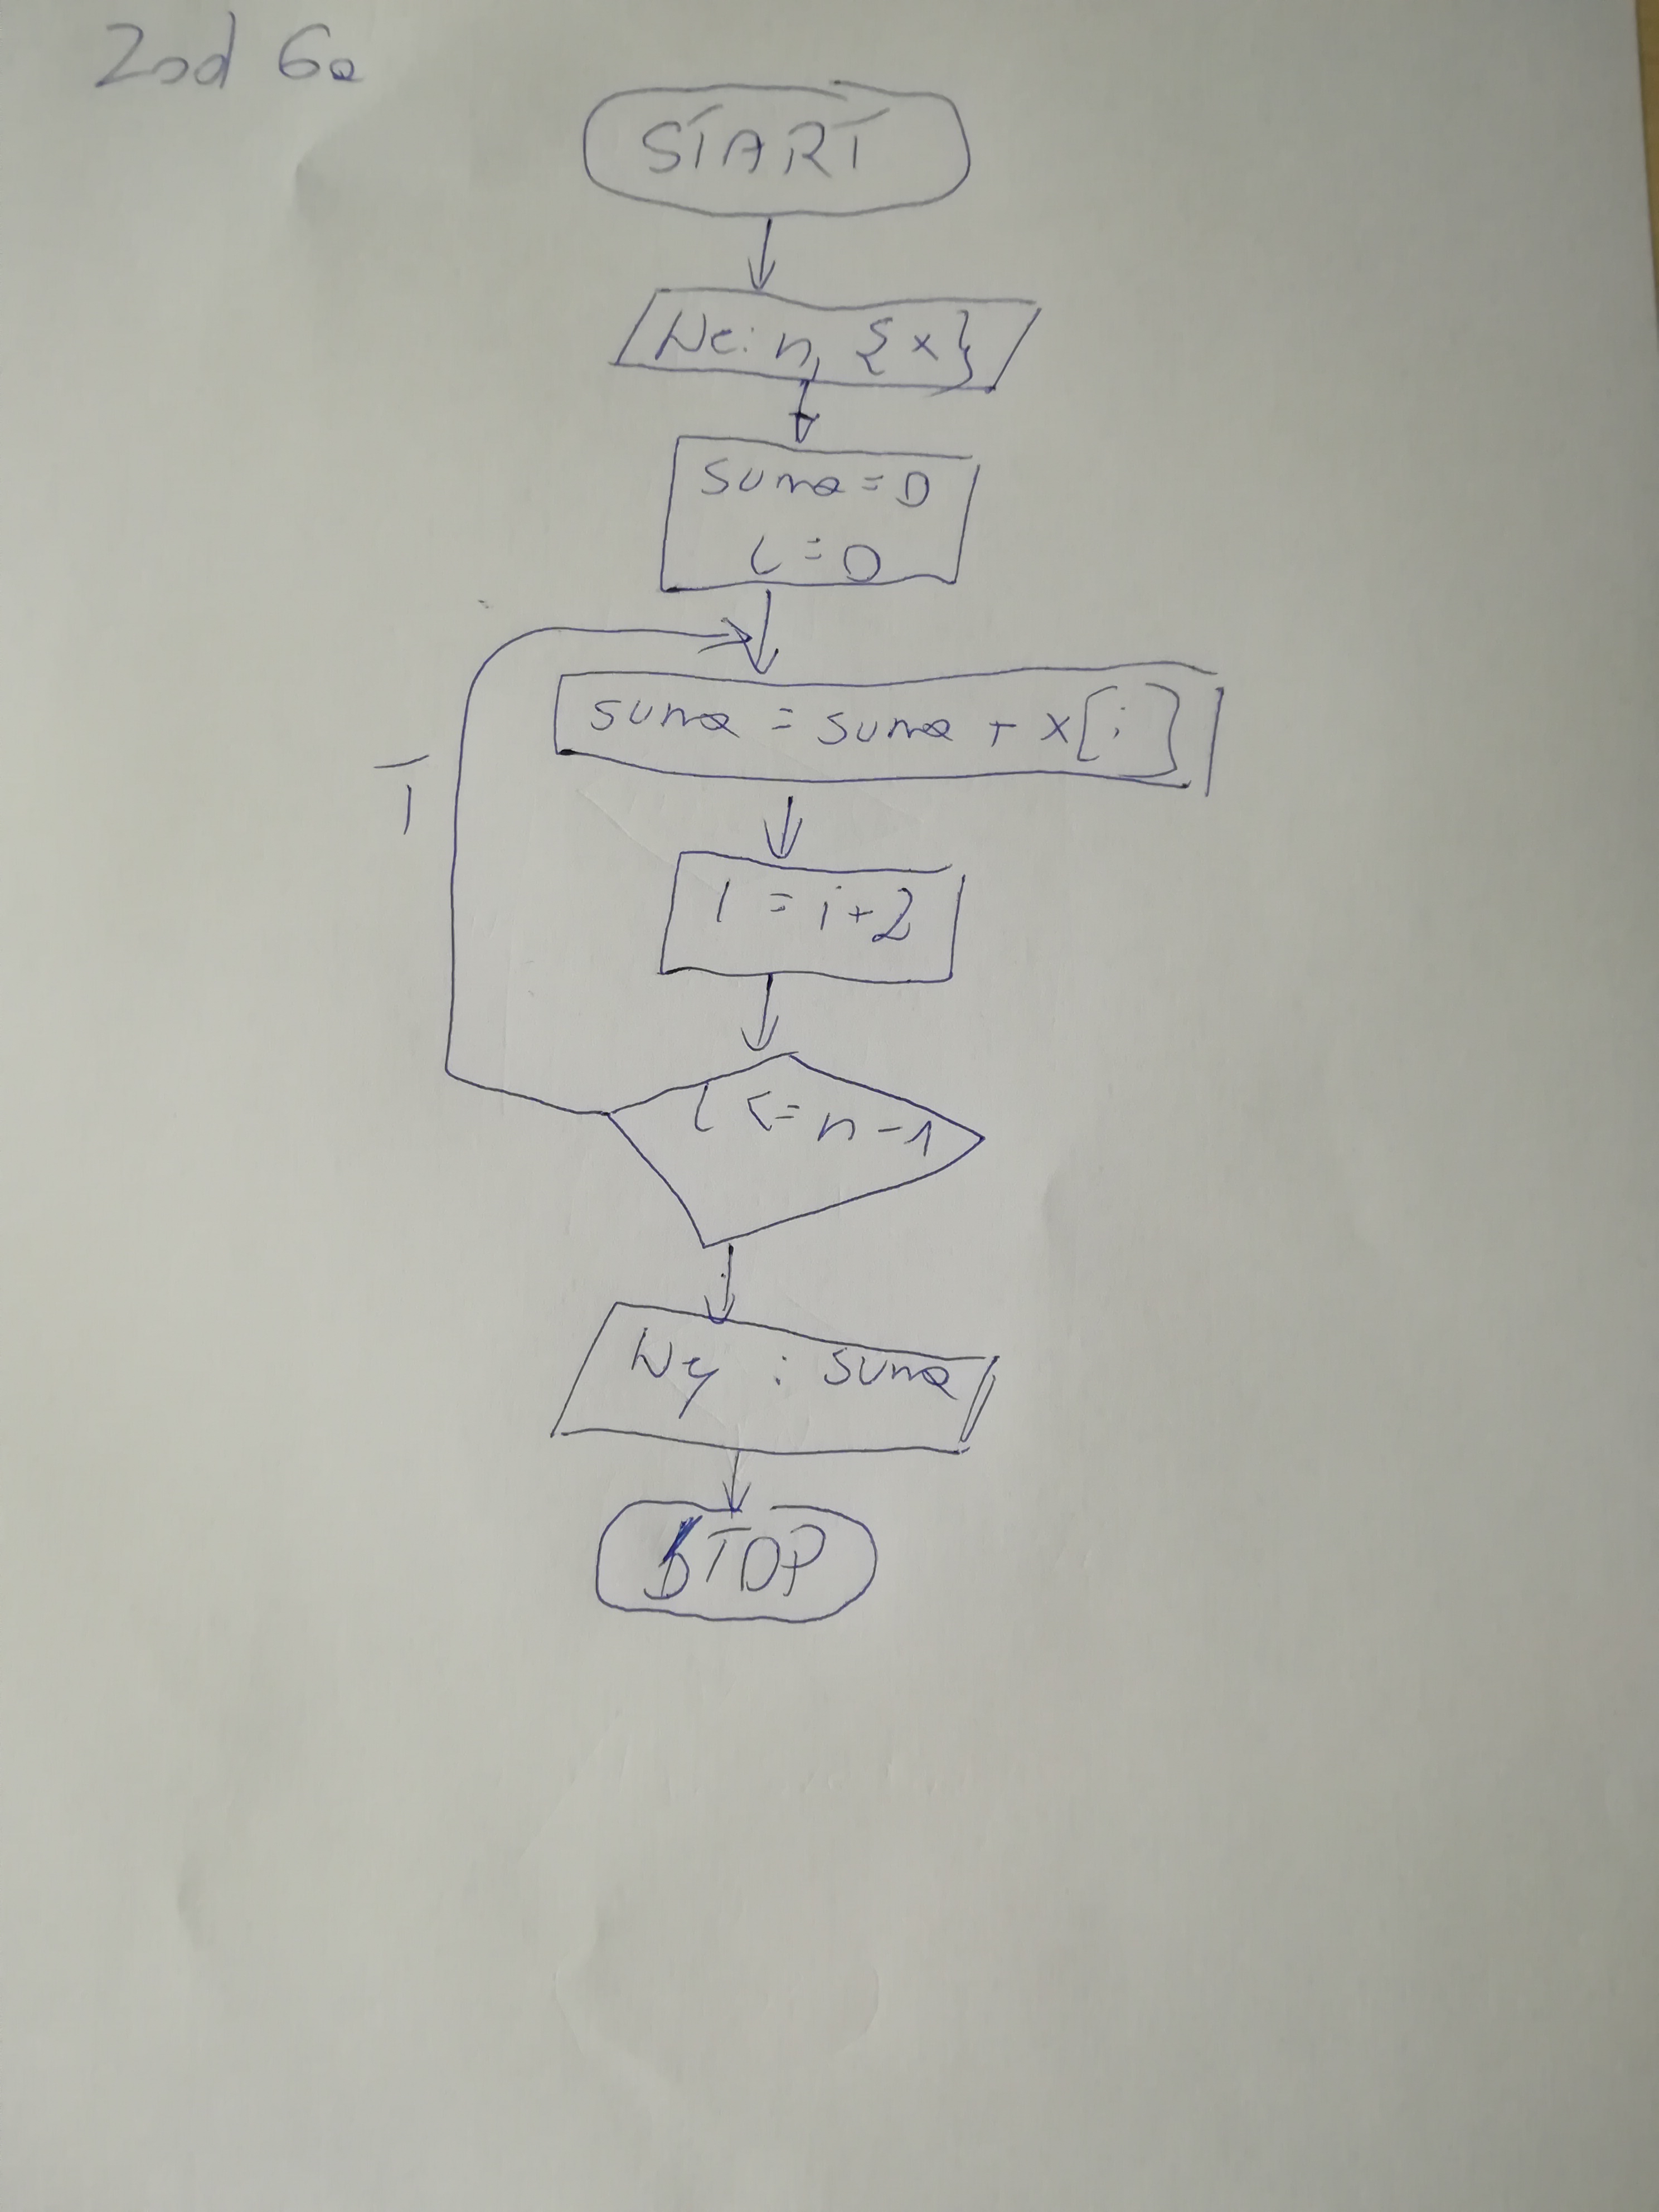 Zad 6a
START
We: n, {x}
suma = 0
i = 0
suma = suma + x[i]
T
i = i+2
i <= n-1
Wy : suma
STOP